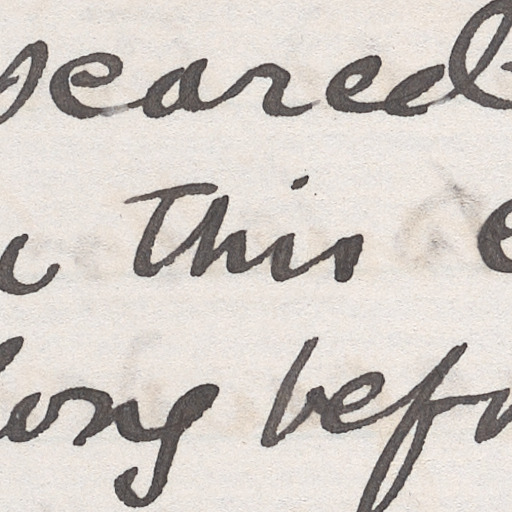 peared
this
long bef